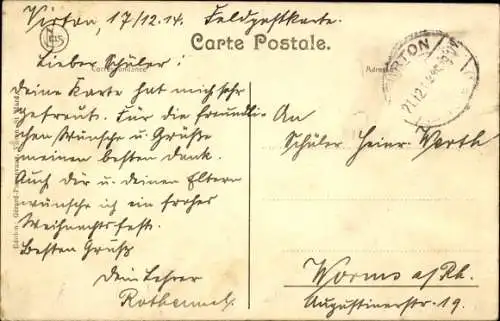 Virton, 17/12.14. Feldpostkarte.
Carte Postale.
Correspondance
Adresse
VIRTON
21.12
Lieber Schüler!
Deine Karte hat mich sehr
gefreut. Für die freundli-
chen Wünsche u. Grüße
meinen besten Dank.
Auch dir u. deinen Eltern
wünsche ich ein frohes
Weihnachtsfest.
Besten Gruß
Dein Lehrer
An
Schüler Heinr. Werth
Worms a/Rh.
Augustinerstr. 19.